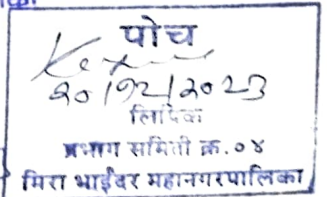 पोच
२०/१२/२०२३
लिपिक
प्रभाग समिती क्र. ०४
मिरा भाईंदर महानगरपालिका